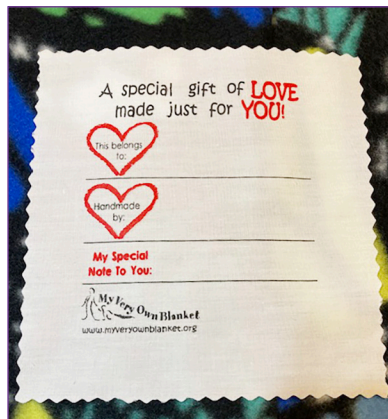 A special gift of LOVE
made just for YOU!
This belongs
to:
Handmade
by:
My Special
Note To You:
My Very Own Blanket
www.myveryownblanket.org